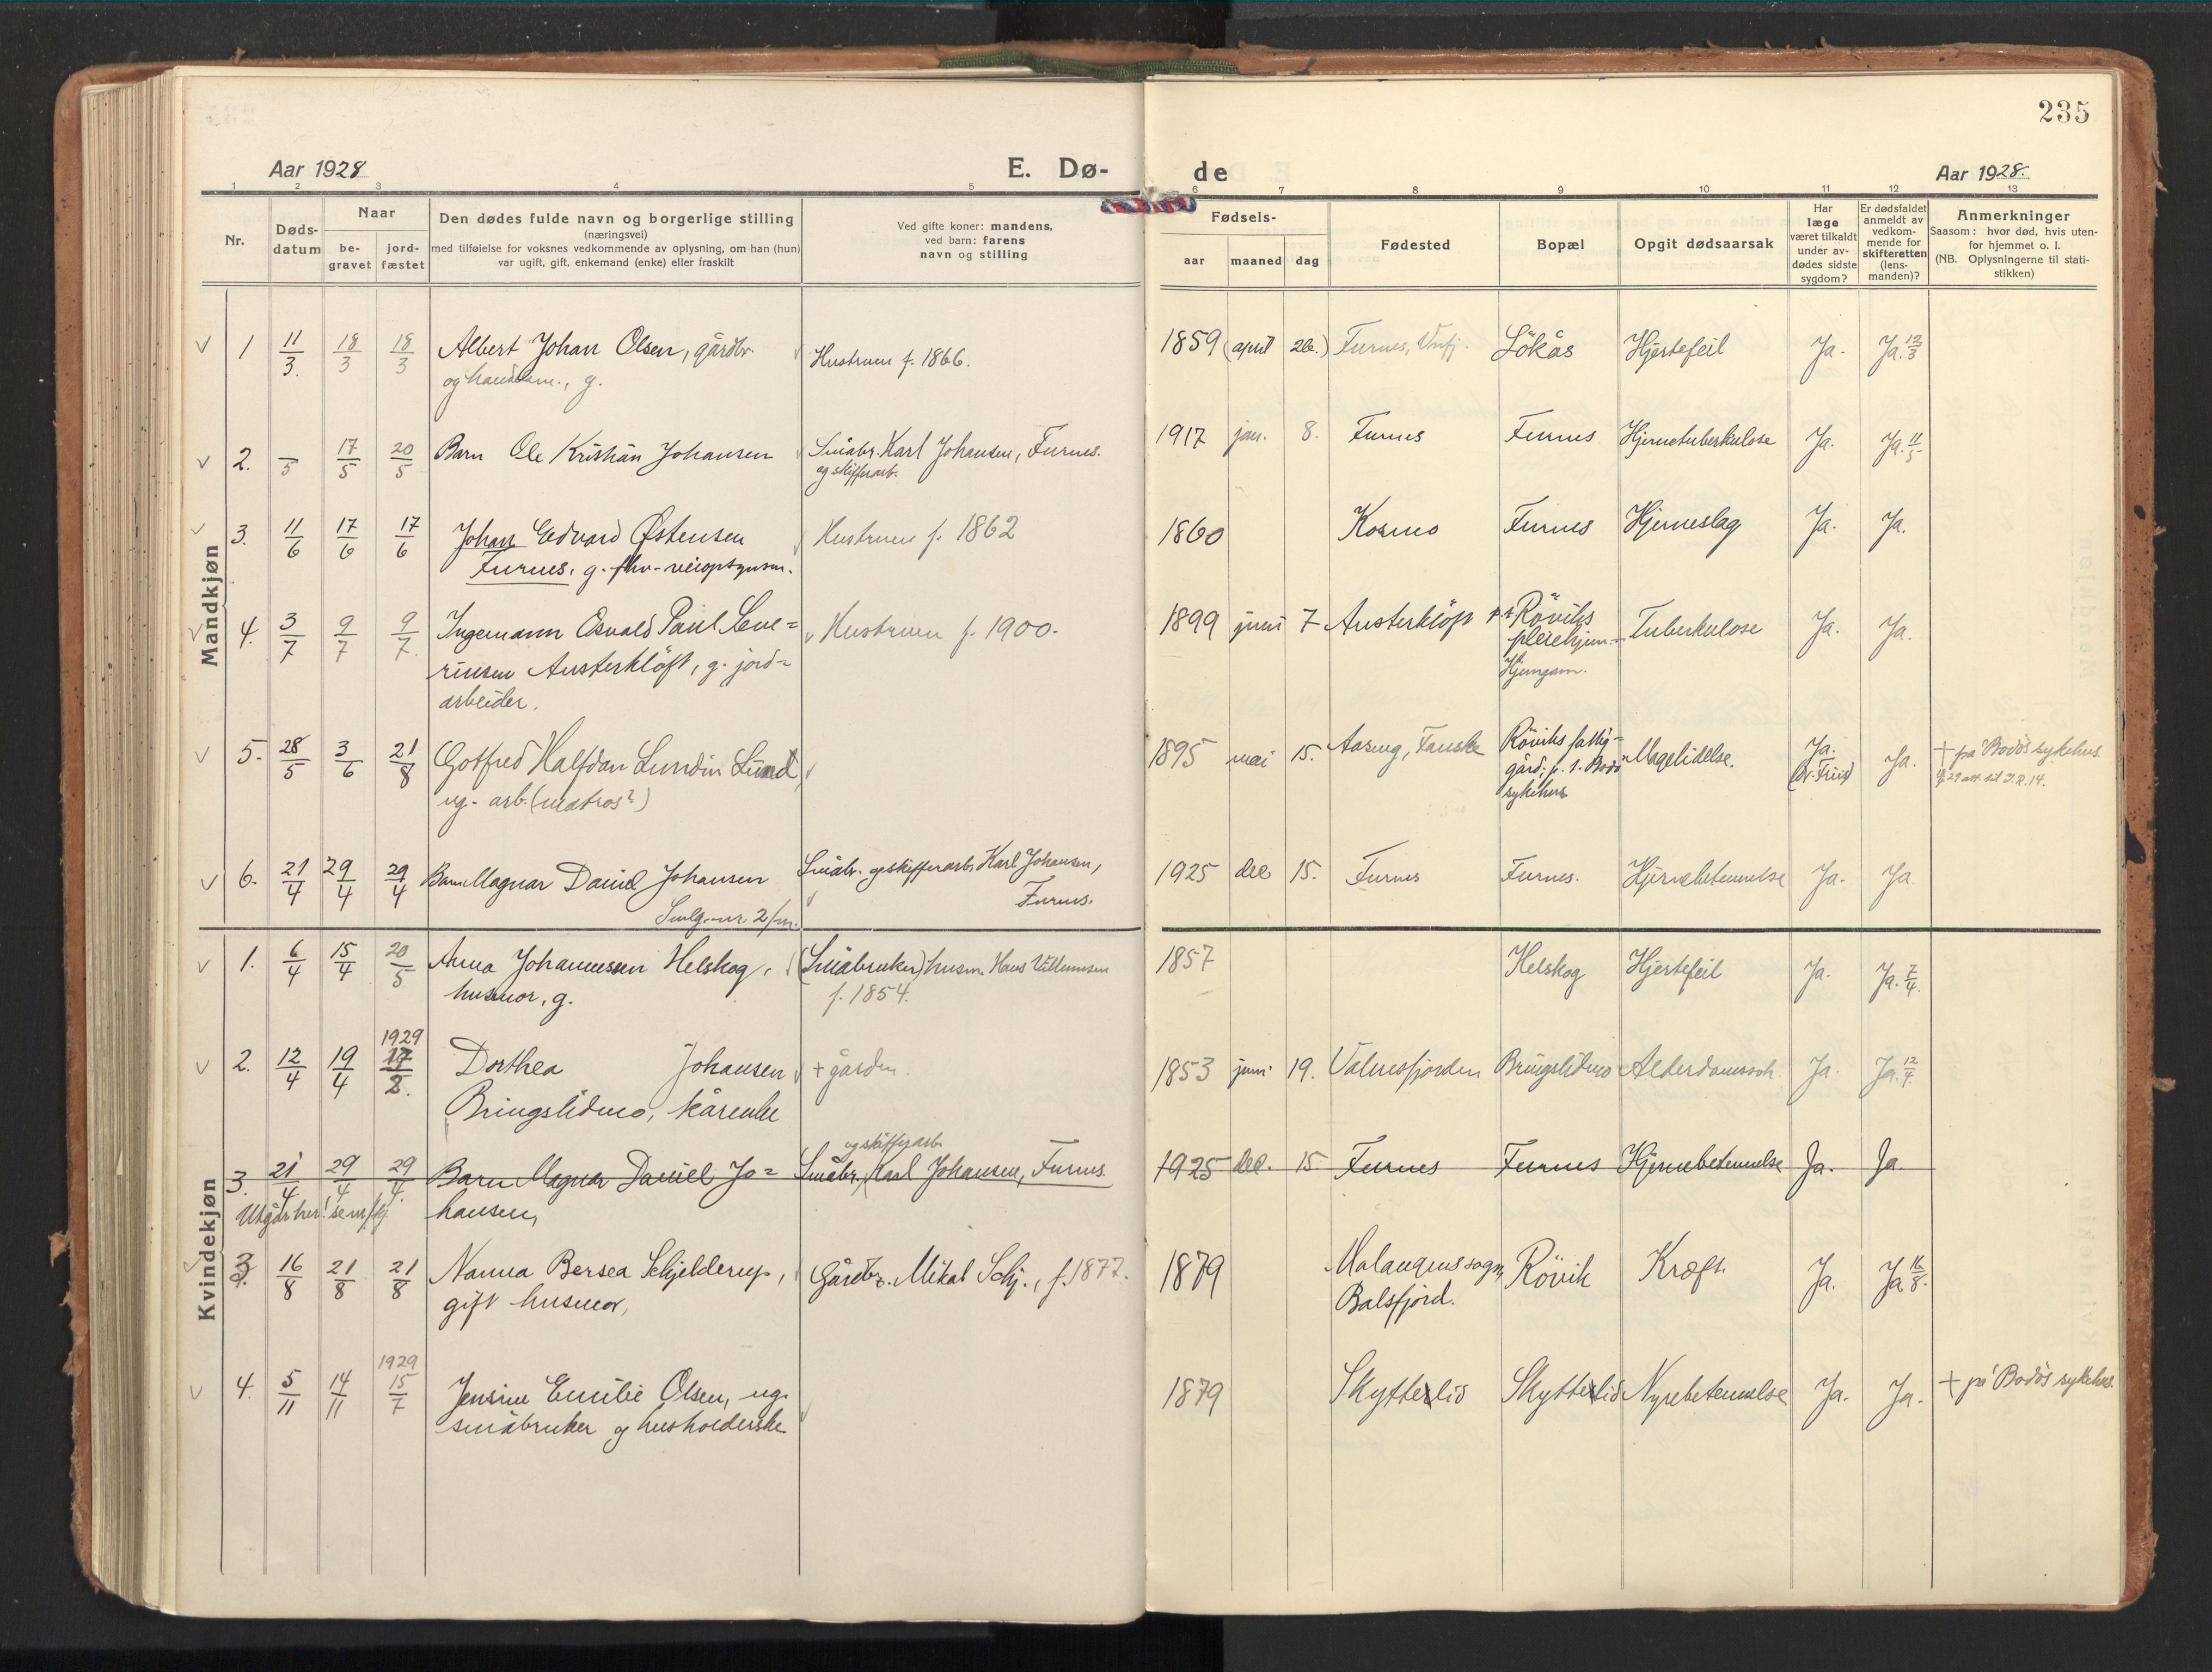 235
Aar 1928
E. Dø-
de
Aar 1928.
1 2 3 4 5 6 7 8 9 10 11 12 13
Nr.
Døds-
datum
Naar
be-
gravet
jord-
fæstet
Den dødes fulde navn og borgerlige stilling
(næringsvei)
med tilføielse for voksnes vedkommende av oplysning, om han (hun)
var ugift, gift, enkemand (enke) eller fraskilt
Ved gifte koner: mandens,
ved barn: farens
navn og stilling
Fødsels-
aar maaned dag
Fødested
Bopæl
Opgit dødsaarsak
Har
læge
været tilkaldt
under av-
dødes sidste
sygdom?
Er dødsfaldet
anmeldt av
vedkom-
mende for
skifteretten
(lens-
manden)?
Anmerkninger
Saasom: hvor død, hvis uten-
for hjemmet o. l.
(NB. Oplysningerne til stati-
stikken)
Mandkjøn
1 11/3. 18/3 18/3 Albert Johan Olsen, gårdbr. Hustruen f. 1866. 1859 (april 26.) Furnes, Lökås Hjertefeil Ja. Ja. 12/3
og g.
2. /5 17/5 20/5 Barn Ole Kristian Johansen Småbr. Karl Johansen, Furnes. 1917 jan. 8. Furnes Furnes Hjernetuberkulose Ja. Ja. 11/5
og skiferarb.
3. 11/6 17/6 17/6 Johan Edvard Østensen Hustruen f. 1862 1860 Kosmo Furnes Hjerneslag Ja. Ja.
Furnes, g. fhv. veiopsynsm.
4. 3/7 9/7 9/7. Ingemann Osvald Paul Seve= Hustruen f. 1900. 1899 juni 7 Austerklöft p.t. Röviks Tuberkulose Ja. Ja.
rinsen Austerklöft, g. jord= pleiehjem.
arbeider. Hjemgam.
5. 28/5 3/6 21/8 Gotfred Halfdan Lundin Lund, 1895 mai 15. Aaseng, Fauske Röviks fattig= Magelidelse. Ja. Ja. + på Bodö sykehus.
ug. arb. (matros?) gård; p. t. Bodö (Dr. Friis) 29 att. til I.R. 14.
sykehus
6. 21/4 29/4 29/4 Barn Magnar Daniel Johansen Småbr. og skifferarb. Karl Johansen, 1925 dec 15. Furnes Furnes. Hjernebetennelse Ja. Ja
Smlg. nr. 2/m. Furnes.
Kvindekjøn
1. 6/4 15/4 20/5 Anna Johannessen Helskog, (Småbruker) husm. Hans Villumsen 1857 Helskog Hjertefeil Ja. Ja. 7/4.
husmor, g. f. 1854.
1929
2. 12/4 19/4 17/2. Dorthea Johansen + gården. 1853 juni 19. Valnesfjorden Bringslidmo Alderdomssvak. Ja Ja. 12/4.
Bringslidmo, kårenke
og skifferarb.
3. 21/4 29/4 29/4. Barn Magnar Daniel Jo= Småbr. Karl Johansen, Furnes. 1925 dec. 15 Furnes Furnes Hjernebetennelse Ja. Ja.
Utgår her! hansen,
3. 16/8 21/8 21/8 Nanna Bersea Schjelderup, Gårdbr. Mikal Schj., f. 1877. 1879 Malangens sogn, Rövik Kræft. Ja. Ja 16/8.
gift husmor, Balsfjord.
1929
4. 5/11 14/11 15/7 Jensine Emilie Olsen, ug. 1879 Skytterlid Skytterlid Nyrebetennelse Ja. Ja. + på Bodö sykehus.
småbruker og husholderske